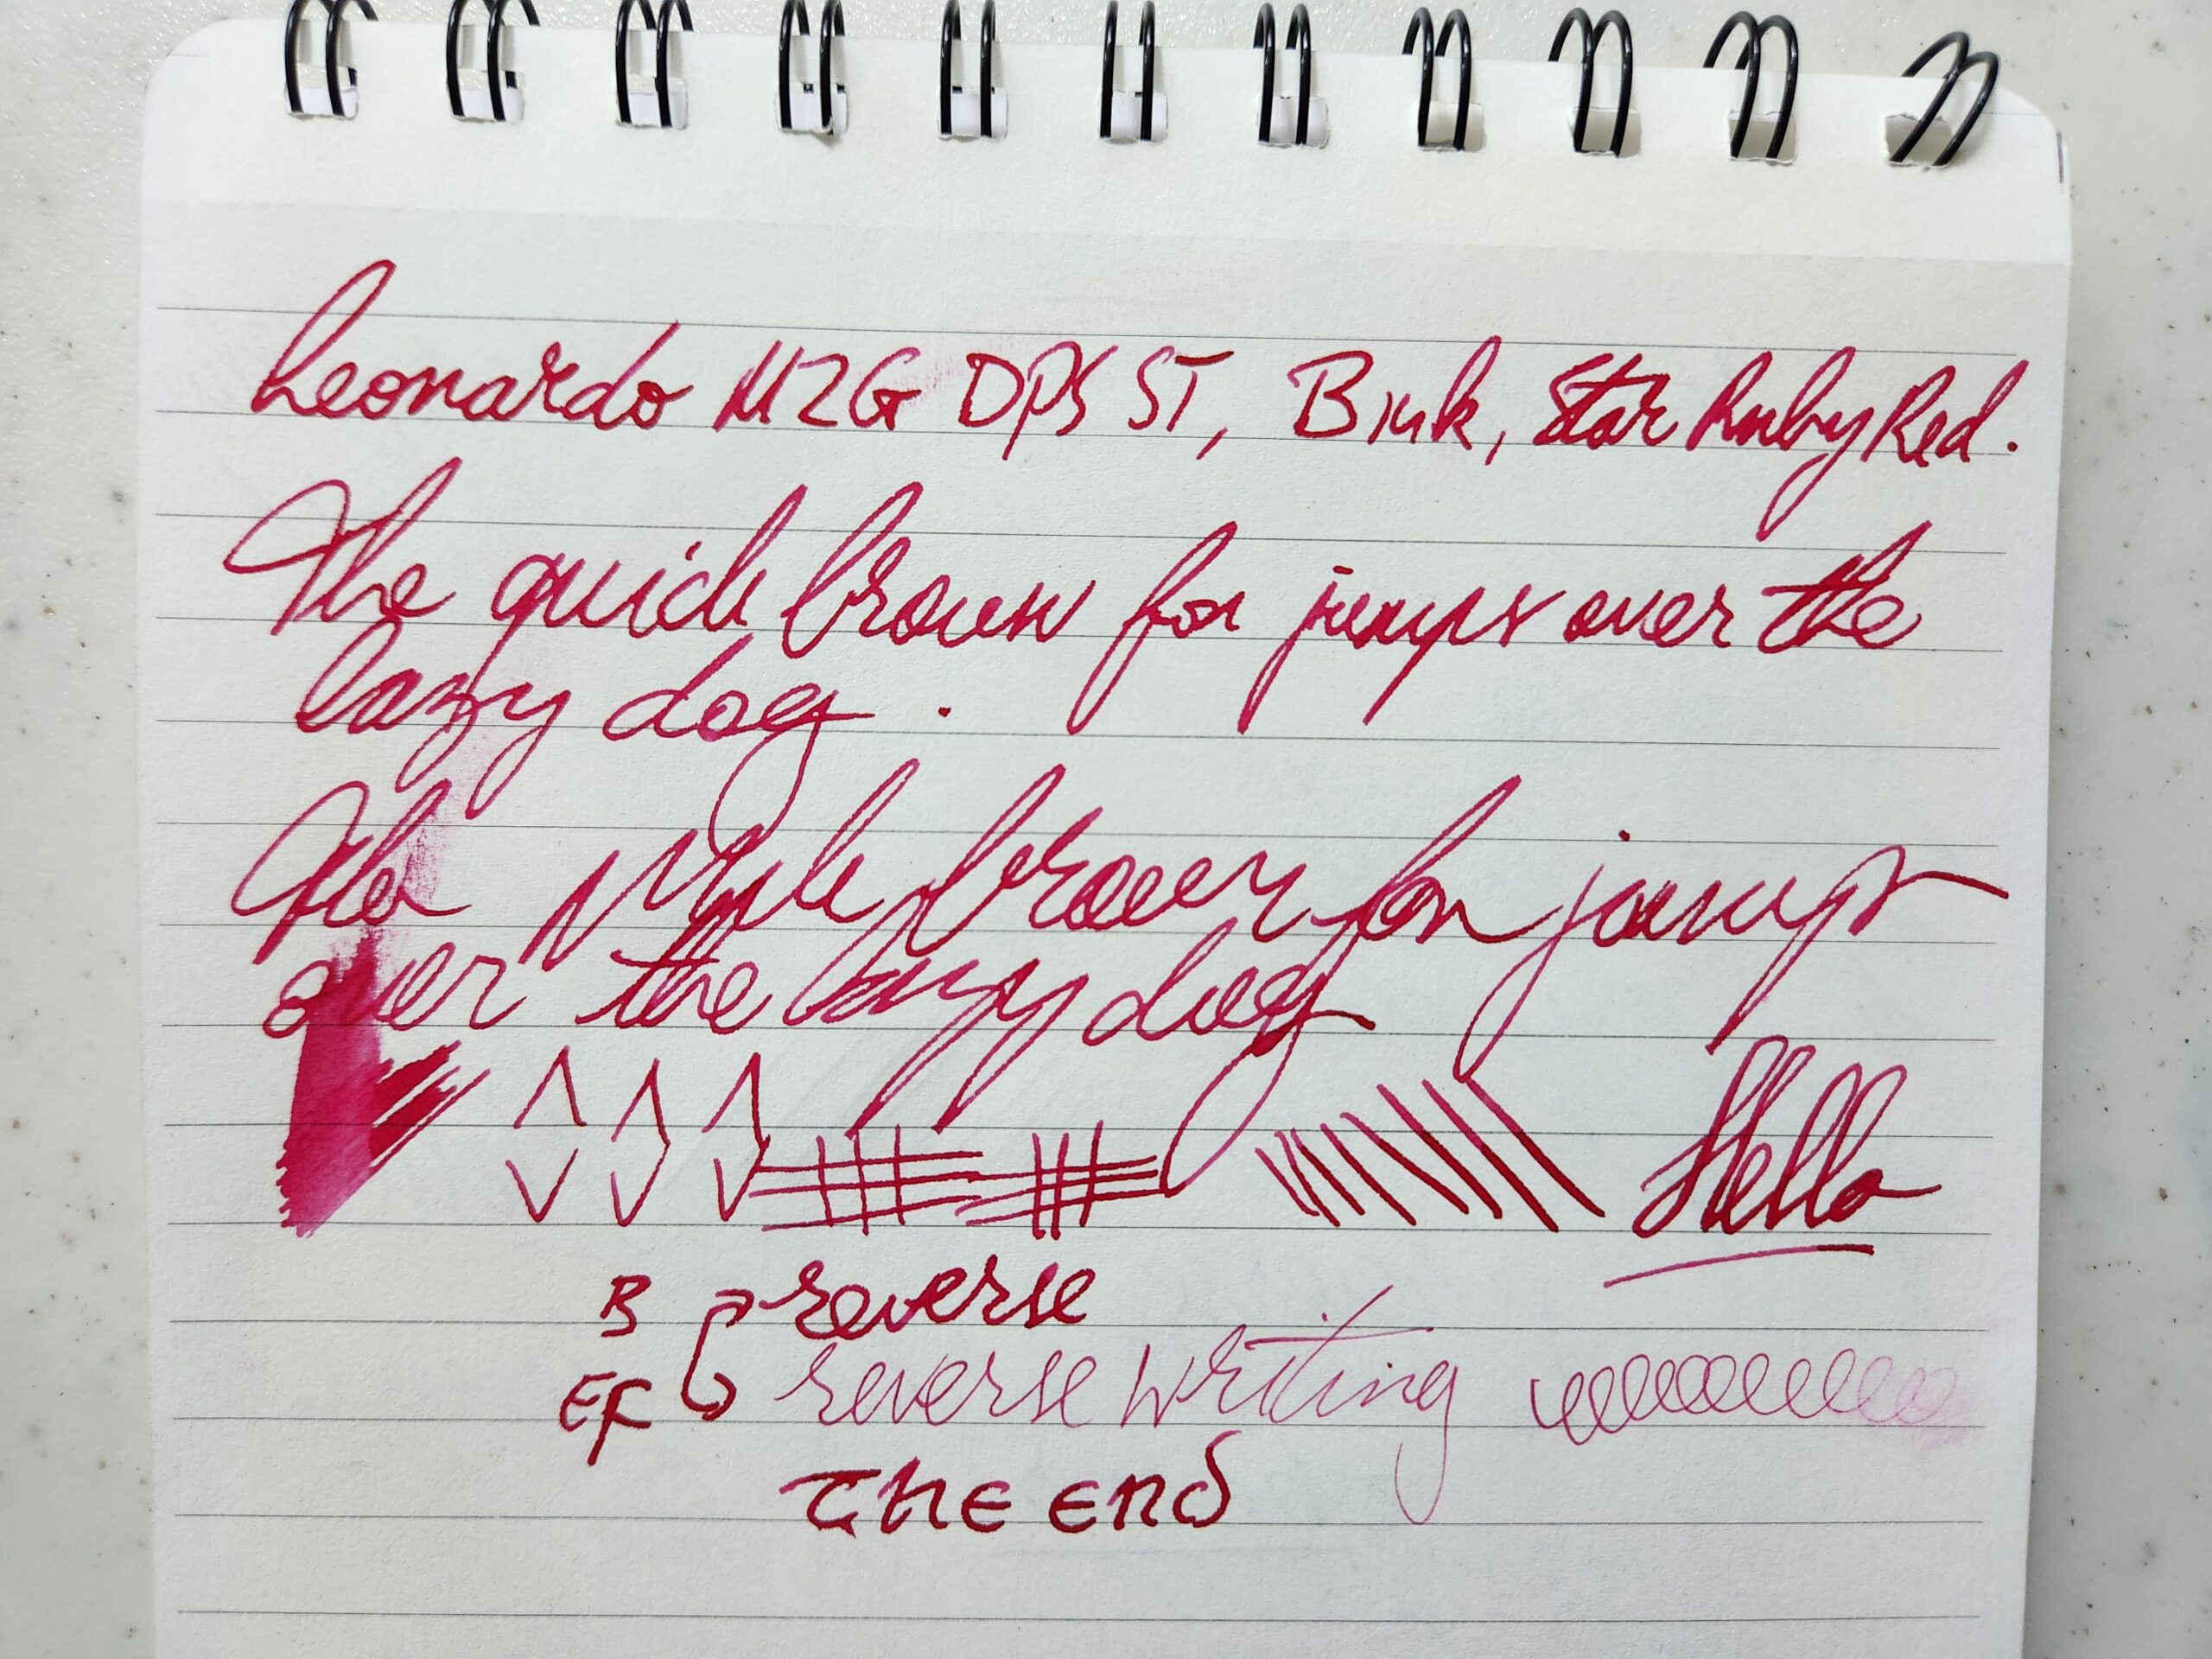 Leonardo MZG DPS ST, B ink, Star Ruby Red.
The quick brown fox jumps over the
lazy dog.
The quick brown fox jumps
over the lazy dog
Hello
B reverse
EF reverse writing
The end